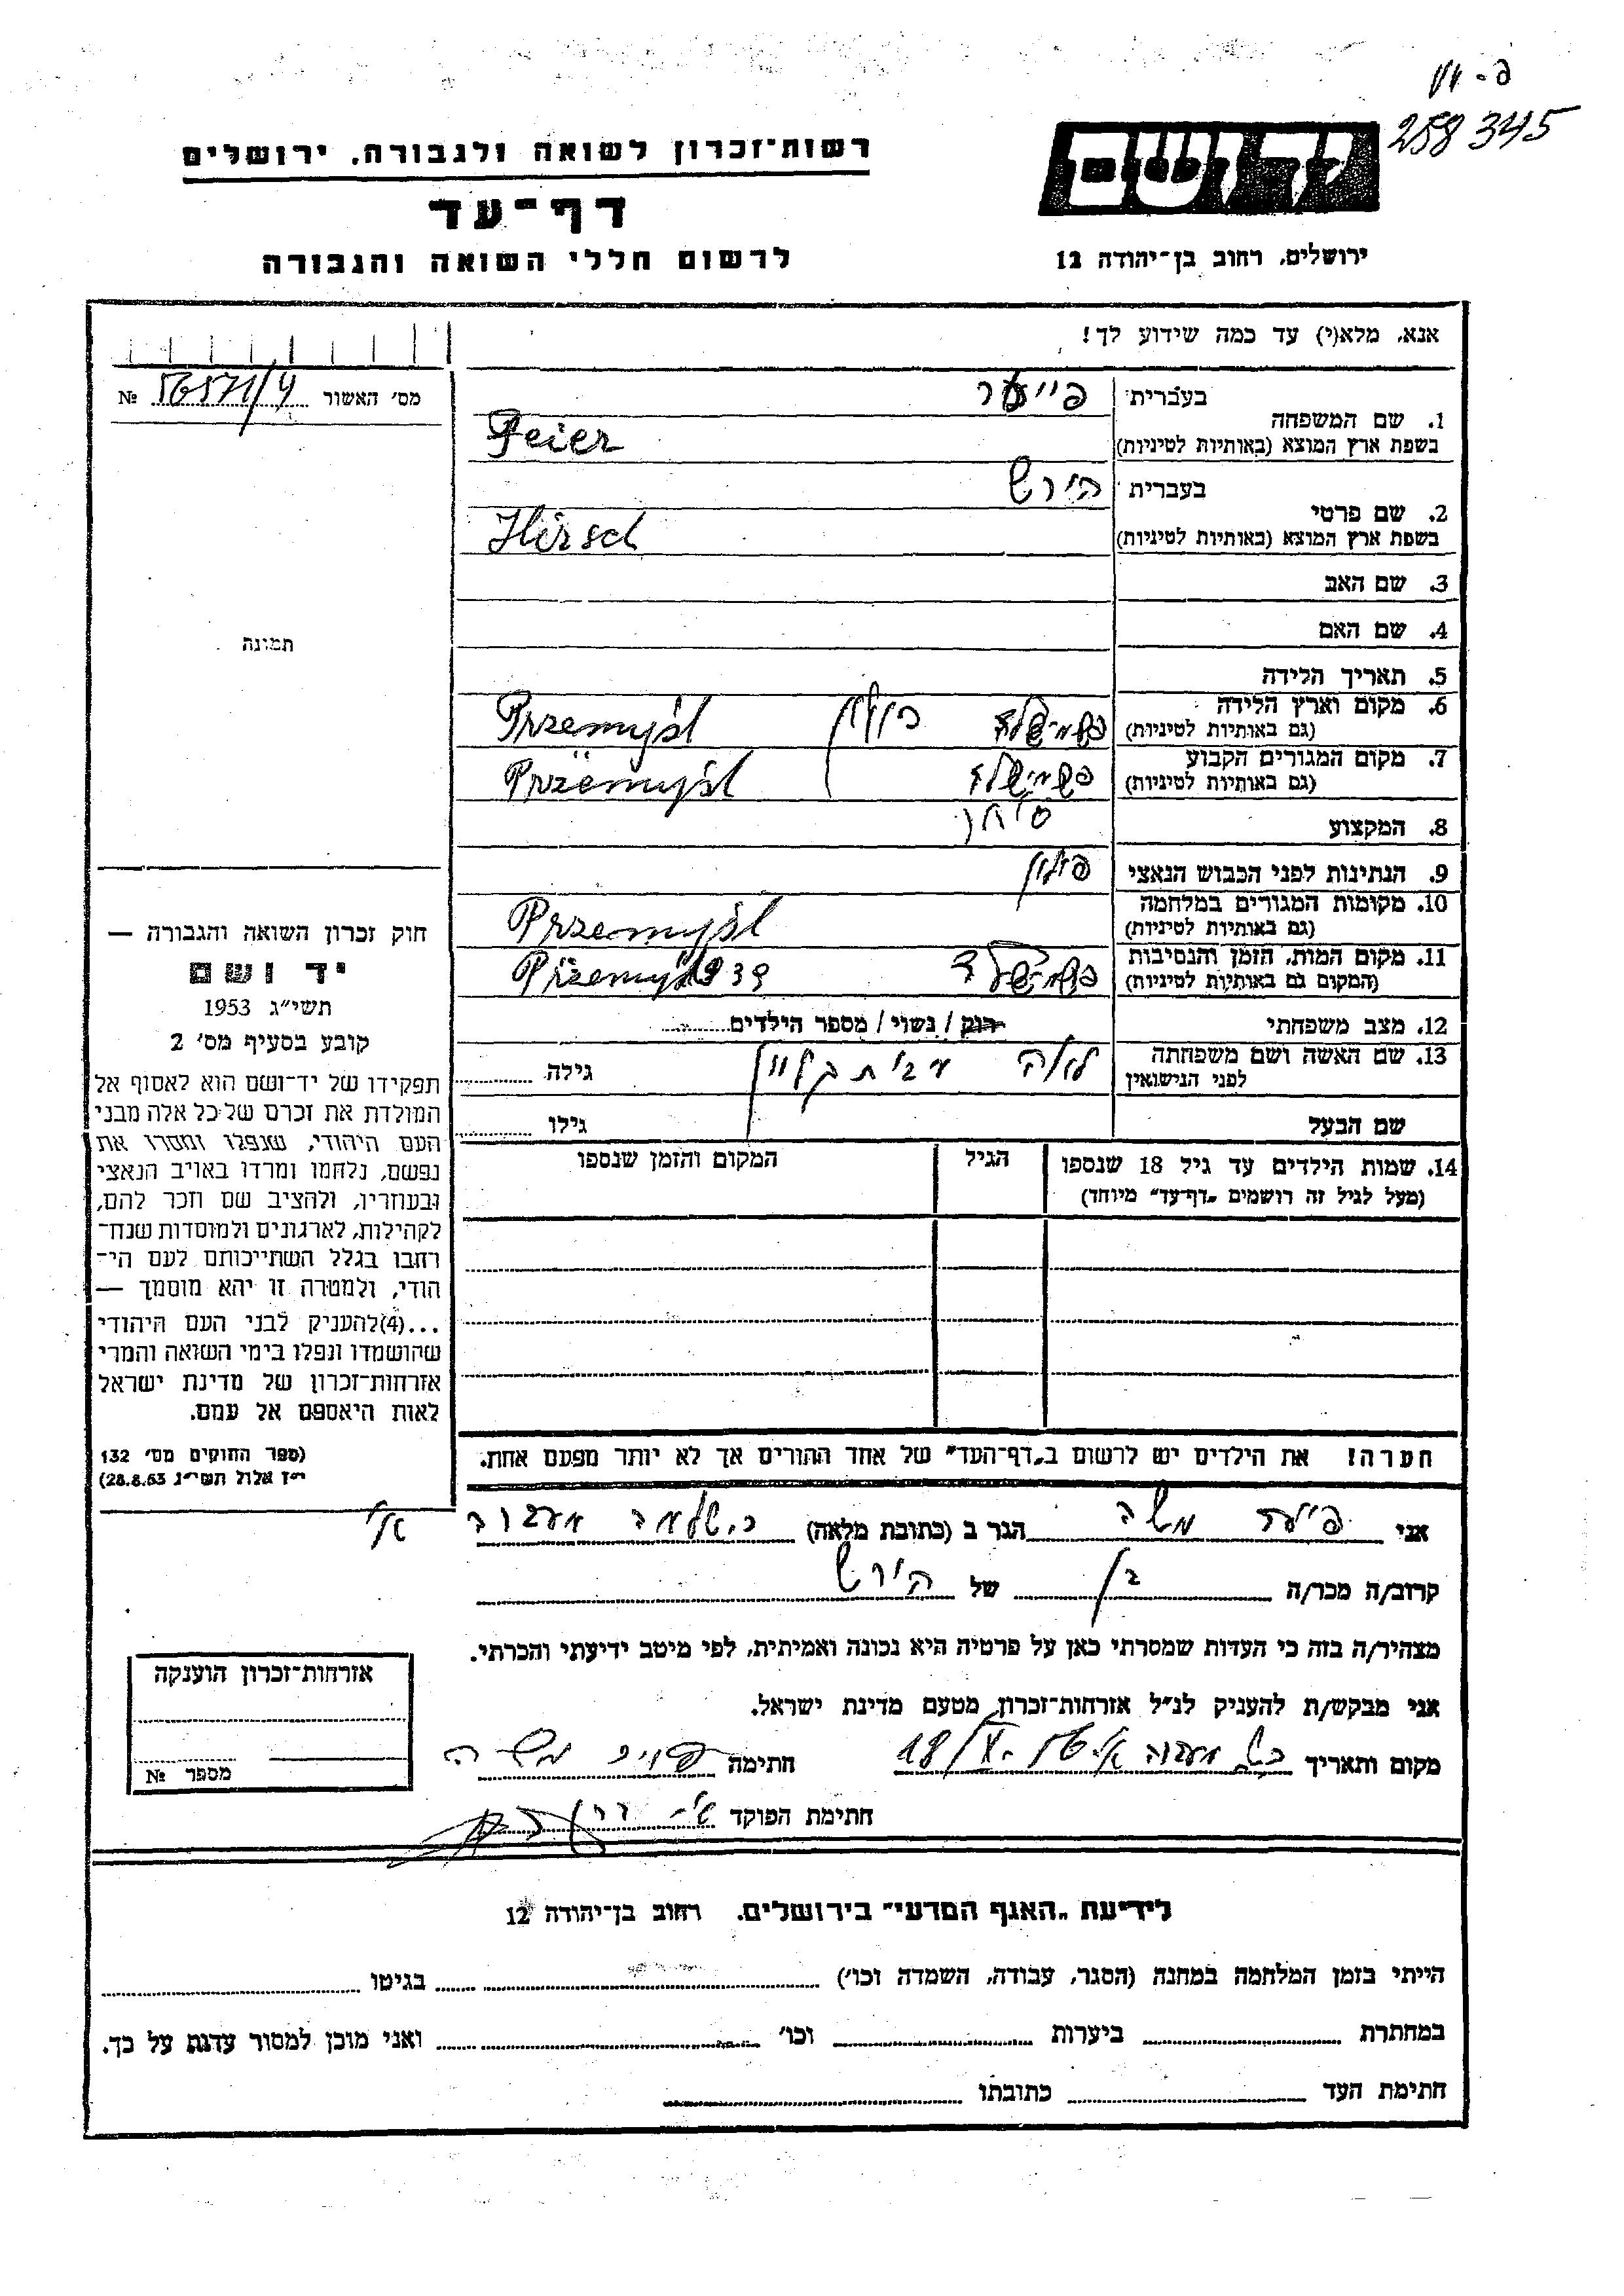 פ-וו
258345
יד ושם
רשות־זכרון לשואה ולגבורה, ירושלים
דף־עד
לרשום חללי השואה והגבורה
ירושלים, רחוב בן־יהודה 12
אנא, מלא(י) עד כמה שידוע לך!
מס׳ האשור № 56571/4
תמונה
1. שם המשפחה בעברית פייער
בשפת ארץ המוצא (באותיות לטיניות) Feier
2. שם פרטי בעברית הירש
בשפת ארץ המוצא (באותיות לטיניות) Hirsch
3. שם האב
4. שם האם
5. תאריך הלידה
6. מקום וארץ הלידה
(גם באותיות לטיניות) פשמישלד פולין Przemyśl
7. מקום המגורים הקבוע
(גם באותיות לטיניות) פשמישלד Przemyśl
8. המקצוע סוחר
9. הנתינות לפני הכבוש הנאצי פולין
10. מקומות המגורים במלחמה
(גם באותיות לטיניות) Przemyśl
11. מקום המות, הזמן והנסיבות
(המקום גם באותיות לטיניות) פשמישלד Przemyśl 939
12. מצב משפחתי רוק / נשוי / מספר הילדים
13. שם האשה ושם משפחתה
לפני הנישואין לאה גילה
שם הבעל גילו
14. שמות הילדים עד גיל 18 שנספו
(מעל לגיל זה רושמים „דף־עד״ מיוחד)
הגיל
המקום והזמן שנספו
חוק זכרון השואה והגבורה —
יד ושם
תשי״ג 1953
קובע בסעיף מס׳ 2
תפקידו של יד־ושם הוא לאסוף אל
המולדת את זכרם של כל אלה מבני
העם היהודי, שנפלו ומסרו את
נפשם, נלחמו ומרדו באויב הנאצי
ובעוזריו, ולהציב שם וזכר להם,
לקהילות, לארגונים ולמוסדות שנח־
רובו בגלל השתייכותם לעם הי־
הודי, ולמטרה זו יהא מוסמך —
...(4) להעניק לבני העם היהודי
שהושמדו ונפלו בימי השואה והמרי
אזרחות־זכרון של מדינת ישראל
לאות היאספם אל עמם.
(ספר החוקים מס׳ 132
י״ז אלול תשי״ג 28.8.53)
הערה! את הילדים יש לרשום ב„דף־העד״ של אחד ההורים אך לא יותר מפעם אחת.
אני פייער משה הגר ב (כתובת מלאה)
קרוב/ה מכר/ה בן של הירש
מצהיר/ה בזה כי העדות שמסרתי כאן על פרטיה היא נכונה ואמיתית, לפי מיטב ידיעתי והכרתי.
אני מבקש/ת להעניק לנ״ל אזרחות־זכרון מטעם מדינת ישראל.
מקום ותאריך חתימה משה
חתימת הפוקד
אזרחות־זכרון הוענקה
מספר №
לידיעת „האגף המדעי״ בירושלים, רחוב בן־יהודה 12
הייתי בזמן המלחמה במחנה (הסגר, עבודה, השמדה וכו׳) בגיטו
במחתרת ביערות וכו׳ ואני מוכן למסור עדות על כך.
חתימת העד כתובתו